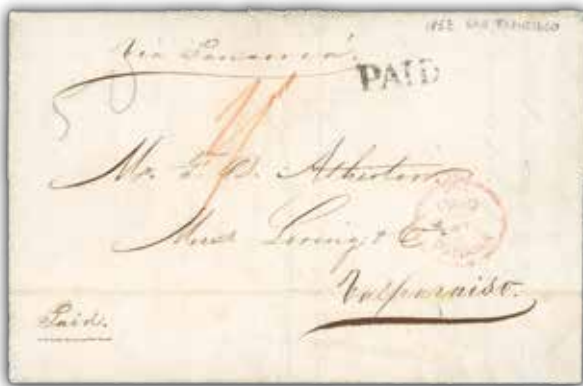 1852 SAN FRANCISCO
Via Panamá.
PAID
Mr. F. D. Atherton
Messrs Loring & Co.
Valparaiso.
Paid.